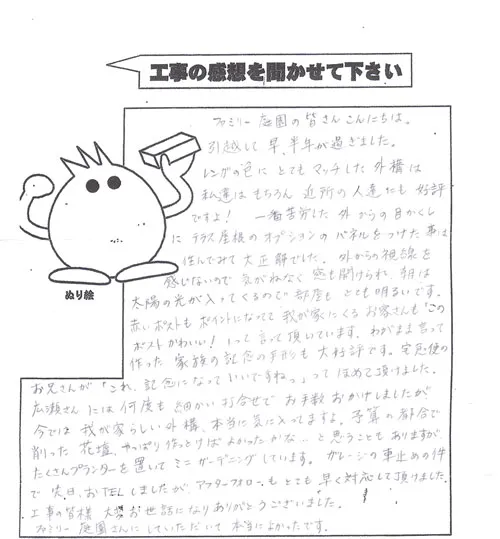 工事の感想を聞かせて下さい
ファミリー庭園の皆さんこんにちは。
引越して早、半年が過ぎました。
レンガの色にとてもマッチした外構は
私達はもちろん近所の人達にも好評
ですよ！一番苦労した外からの目かくし
にテラス屋根のオプションのパネルをつけた事は
住んでみて大正解でした。外からの視線を
感じないので気がねなく窓も開けられ、朝は
太陽の光が入ってくるので部屋もとても明るいです。
赤いポストもポイントになってて我が家にくるお客さんも「この
ポストかわいい！」って言って頂いています。わがまま言って
作った家族の記念の手形も大好評です。宅急便の
お兄さんが「これ、記念になっていいですねっ」ってほめて頂けました。
広瀬さんには何度も細かい打合せでお手数おかけしましたが
今では我が家らしい外構、本当に気に入ってますよ。予算の都合で
削った花壇、やっぱり作っとけばよかったかな…と思うこともありますが、
たくさんプランターを置いてミニガーデニングしています。ガレージの車止めの件
で先日、お TELしましたが、アフターフォローもとても早く対応して頂けました。
工事の皆様大変お世話になりありがとうございました。
ファミリー庭園さんにしていただいて本当によかったです。
ぬり絵